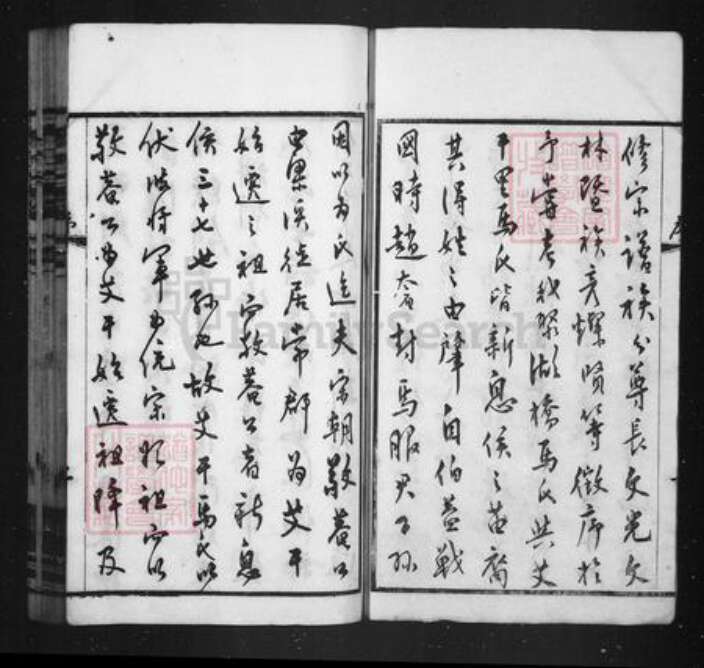 修宗譜族分尊長文光文
林暨族彥燦賢等徵序於
予嘗考我琴湖橋馬氏與艾
干里馬氏皆新息侯之苗裔
其得姓之由肇自伯益戰
國時趙奢封馬服君子孫
因以為氏迨夫宋朝敬菴公
由梁溪徙居常郡為艾干
始遷之祖而敬菴公者新息
侯三十七世孫也故艾干馬氏以
伏波將軍為統宗始祖而以
敬菴公為艾干始遷祖降及
FamilySearch